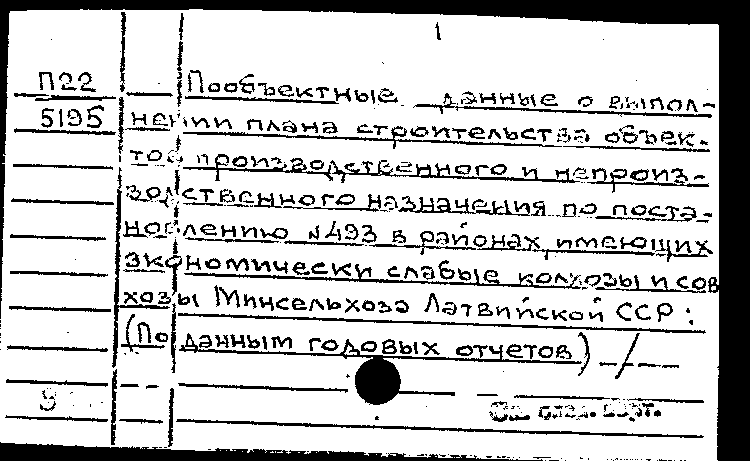 1
П22 Пообъектные данные о выпол-
5195 нении плана строительства объек-
тов производственного и непроиз-
водственного назначения по поста-
новлению №493 в районах, имеющих
экономически слабые колхозы и сов
хозы Минсельхоза Латвийской ССР:
(По данным годовых отчетов) —/—
См. след. карт.